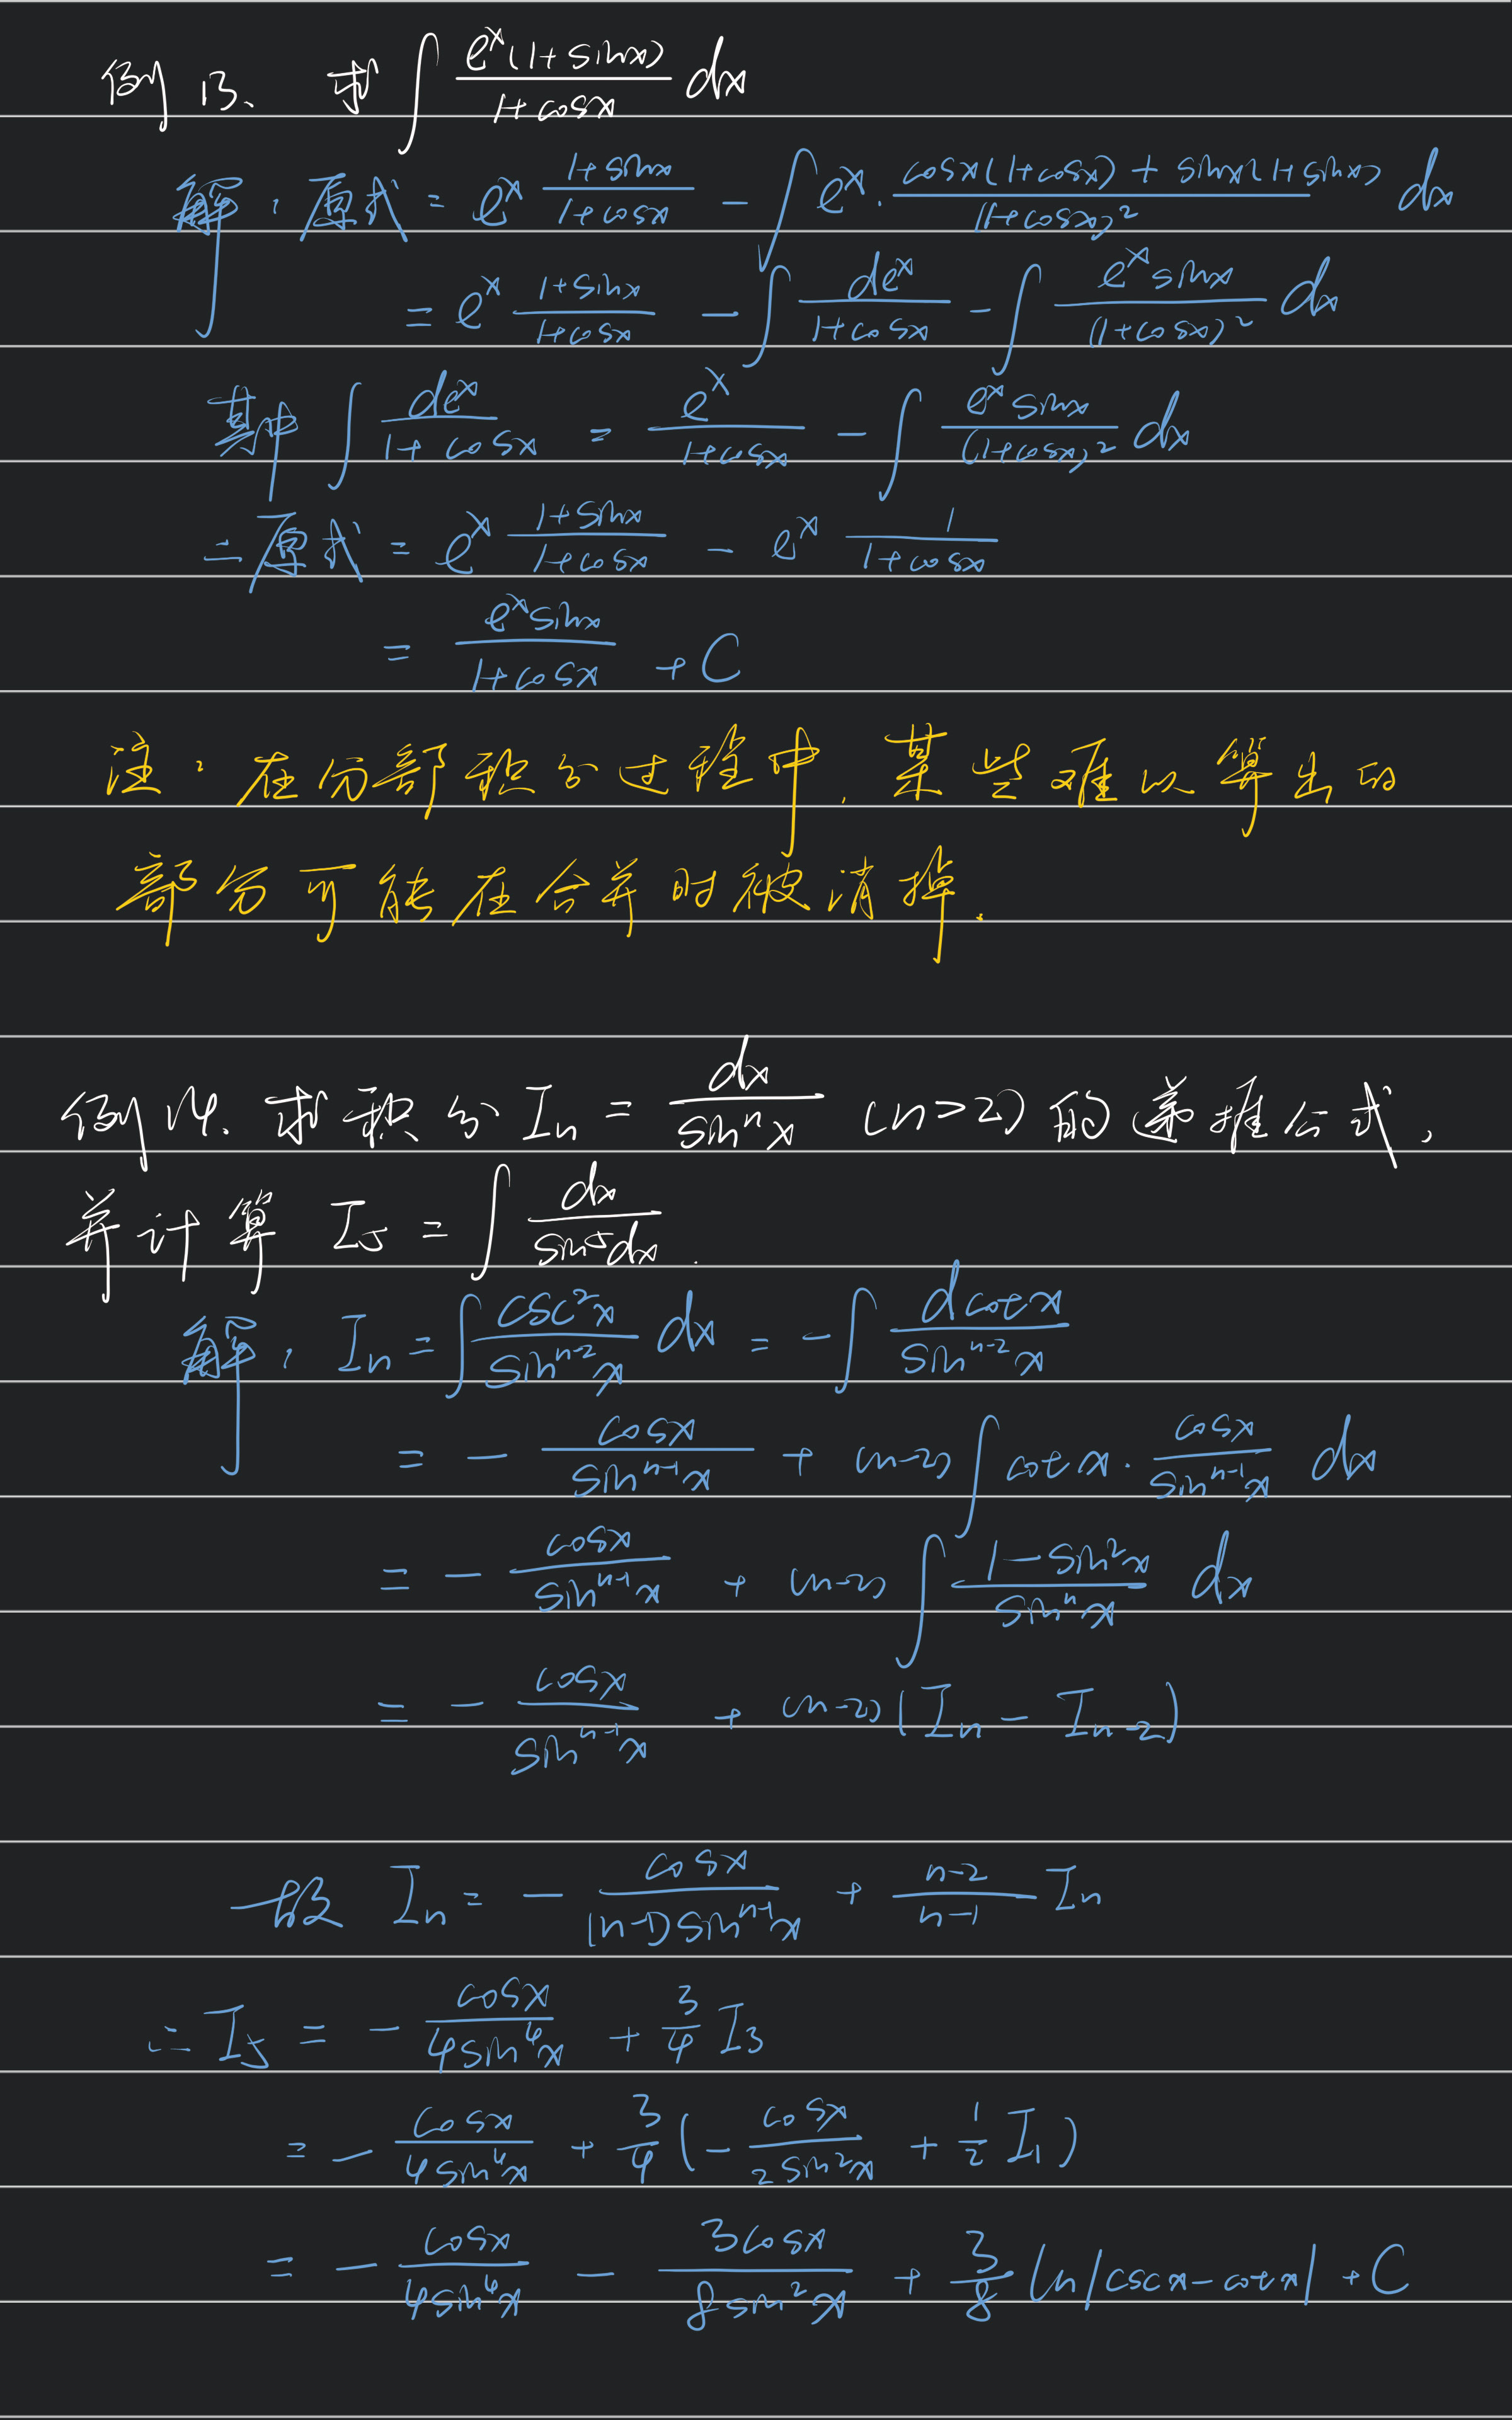 例13、求∫ e^x(1+sinx)/(1+cosx) dx
解:原式 = e^x (1+sinx)/(1+cosx) - ∫ e^x · (cosx(1+cosx)+sinx(1+sinx))/(1+cosx)² dx
= e^x (1+sinx)/(1+cosx) - ∫ de^x/(1+cosx) - ∫ e^x sinx/(1+cosx)² dx
其中 ∫ de^x/(1+cosx) = e^x/(1+cosx) - ∫ e^x sinx/(1+cosx)² dx
∴原式 = e^x (1+sinx)/(1+cosx) - e^x 1/(1+cosx)
= e^x sinx/(1+cosx) + C
注:在分部积分过程中,某些难以算出的
部分可能在合并时被消掉.
例14.求积分 I_n = dx/sin^n x (n>2) 的递推公式,
并计算 I_5 = ∫ dx/sin^5 dx.
解:I_n = ∫ csc²x/sin^{n-2}x dx = -∫ dcotx/sin^{n-2}x
= - cosx/sin^{n-1}x + (n-2)∫ cotx · cosx/sin^{n-1}x dx
= - cosx/sin^{n-1}x + (n-2)∫ (1-sin²x)/sin^n x dx
= - cosx/sin^{n-1}x + (n-2)(I_n - I_{n-2})
一般 I_n = - cosx/((n-1)sin^{n-1}x) + (n-2)/(n-1) I_n
∴ I_5 = - cosx/(4sin⁴x) + 3/4 I_3
= - cosx/(4sin⁴x) + 3/4 (- cosx/(2sin²x) + 1/2 I_1)
= - cosx/(4sin⁴x) - 3cosx/(8sin²x) + 3/8 ln|cscx-cotx| + C